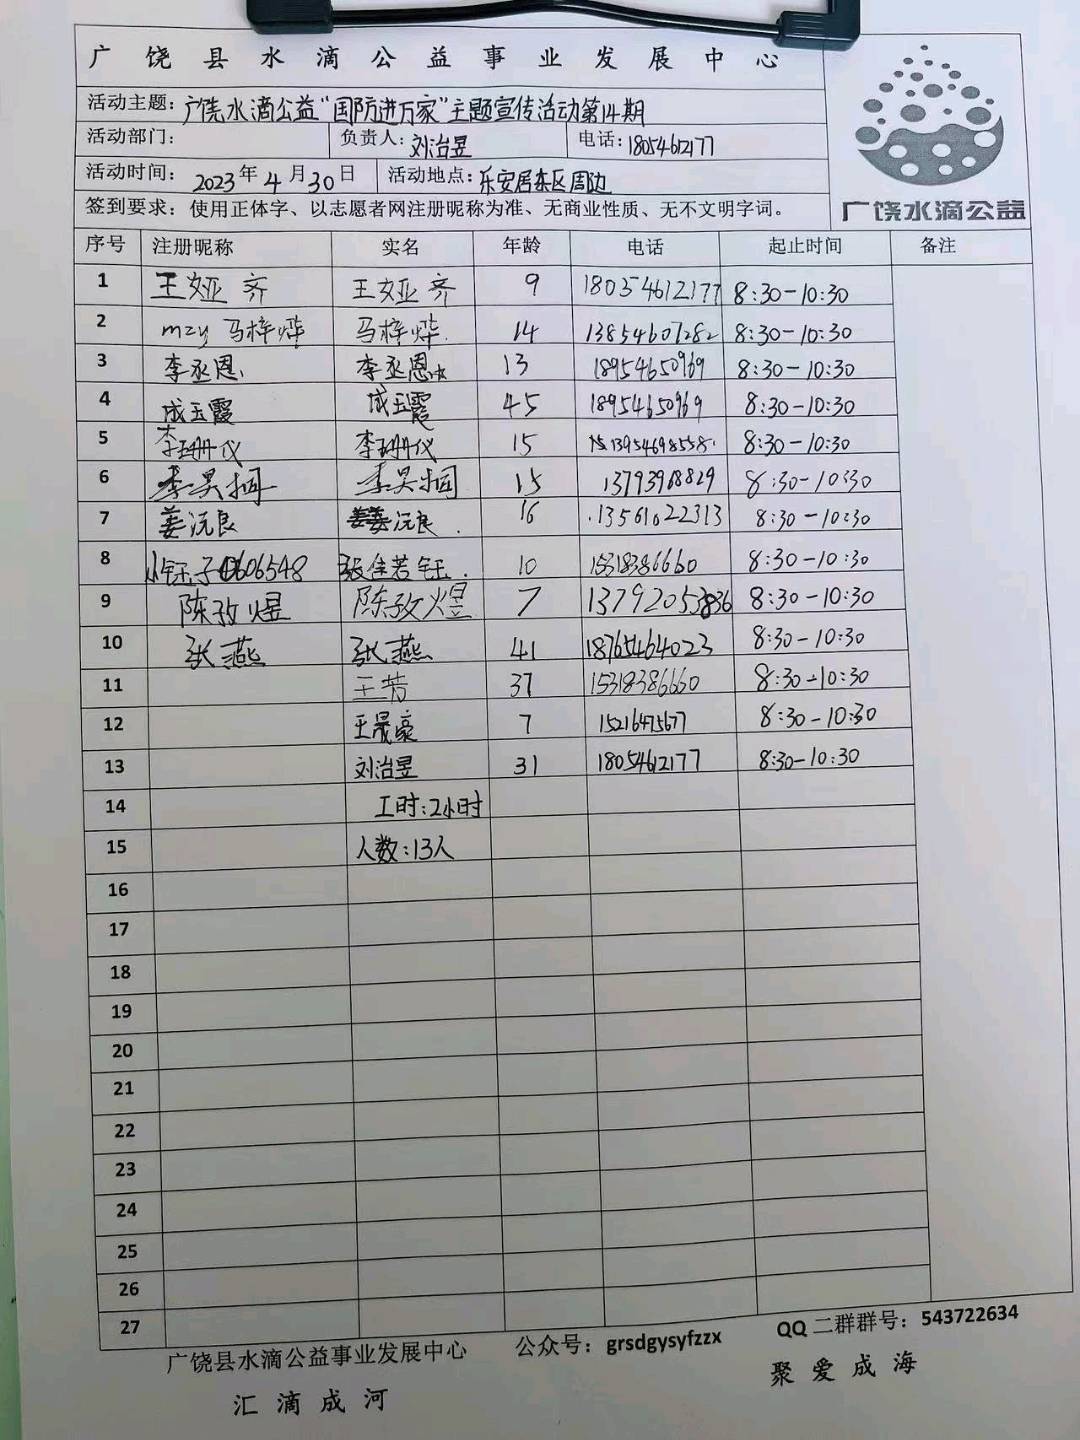 广饶县水滴公益事业发展中心
活动主题：广饶水滴公益“国防进万家”主题宣传活动第14期
活动部门： 负责人：刘治昱 电话：18054612177
活动时间：2023年4月30日 活动地点：乐安居东区周边
签到要求：使用正体字、以志愿者网注册昵称为准、无商业性质、无不文明字词。
广饶水滴公益
序号 注册昵称 实名 年龄 电话 起止时间 备注
1 王姣齐 王姣齐 9 18054612177 8:30-10:30
2 mzy 马梓烨 马梓烨 14 13854607282 8:30-10:30
3 李丞恩 李丞恩 13 18954650969 8:30-10:30
4 成玉霞 成玉霞 45 18954650969 8:30-10:30
5 李珊仪 李珊仪 15 13954698558 8:30-10:30
6 李昊桐 李昊桐 15 13793968829 8:30-10:30
7 姜沅良 姜沅良 16 13561022313 8:30-10:30
8 小钰子0606548 张佳若钰 10 15318386660 8:30-10:30
9 陈孜煜 陈孜煜 7 13792053836 8:30-10:30
10 张燕 张燕 41 18765464023 8:30-10:30
11 王芳 37 15318386660 8:30-10:30
12 王晟豪 7 15216475677 8:30-10:30
13 刘治昱 31 18054612177 8:30-10:30
14 工时：2小时
15 人数：13人
16
17
18
19
20
21
22
23
24
25
26
27
广饶县水滴公益事业发展中心 公众号：grsdgysyfzzx QQ二群群号：543722634
汇滴成河 聚爱成海